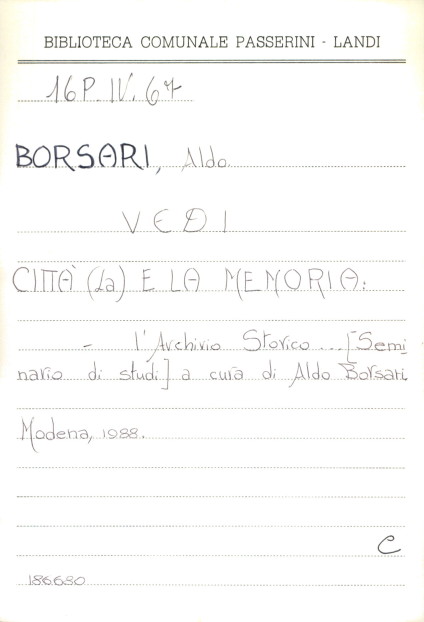 BIBLIOTECA COMUNALE PASSERINI - LANDI
16P.IV.67
BORSARI, Aldo
VEDI
CITTÀ (La) E LA MEMORIA:
- l'Archivio Storico...[Semi
nario di studi] a cura di Aldo Borsari.
Modena, 1988.
C
186680